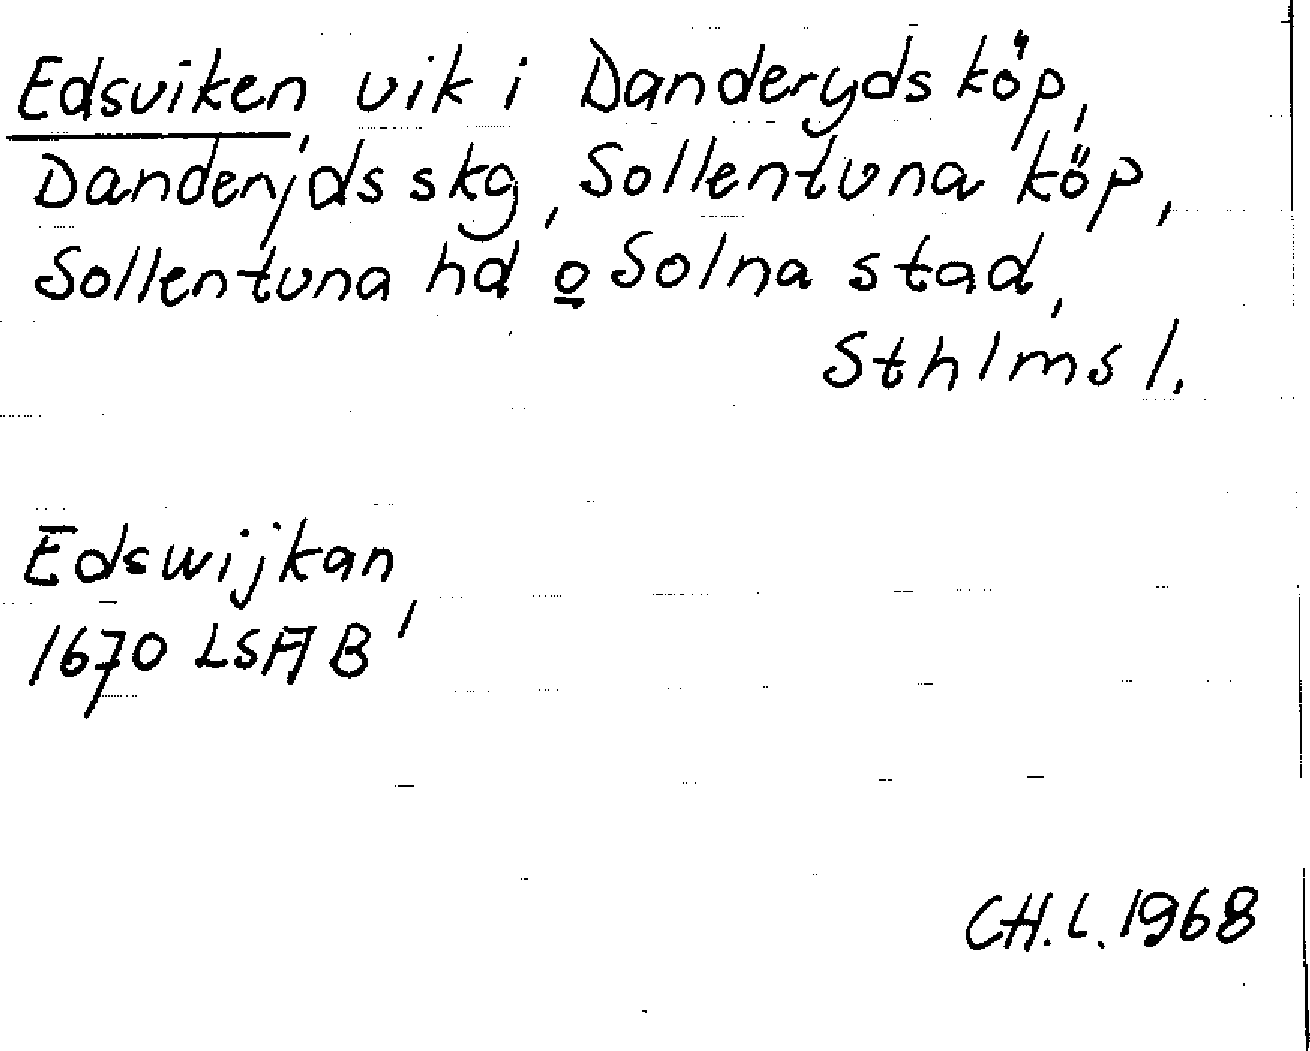 Edsviken, vik i Danderyds köp,
Danderyds skg, Sollentuna köp,
Sollentuna hd o Solna stad,
Sthlms l.
Edswijkan,
1670 LSA B1
CH.L. 1968